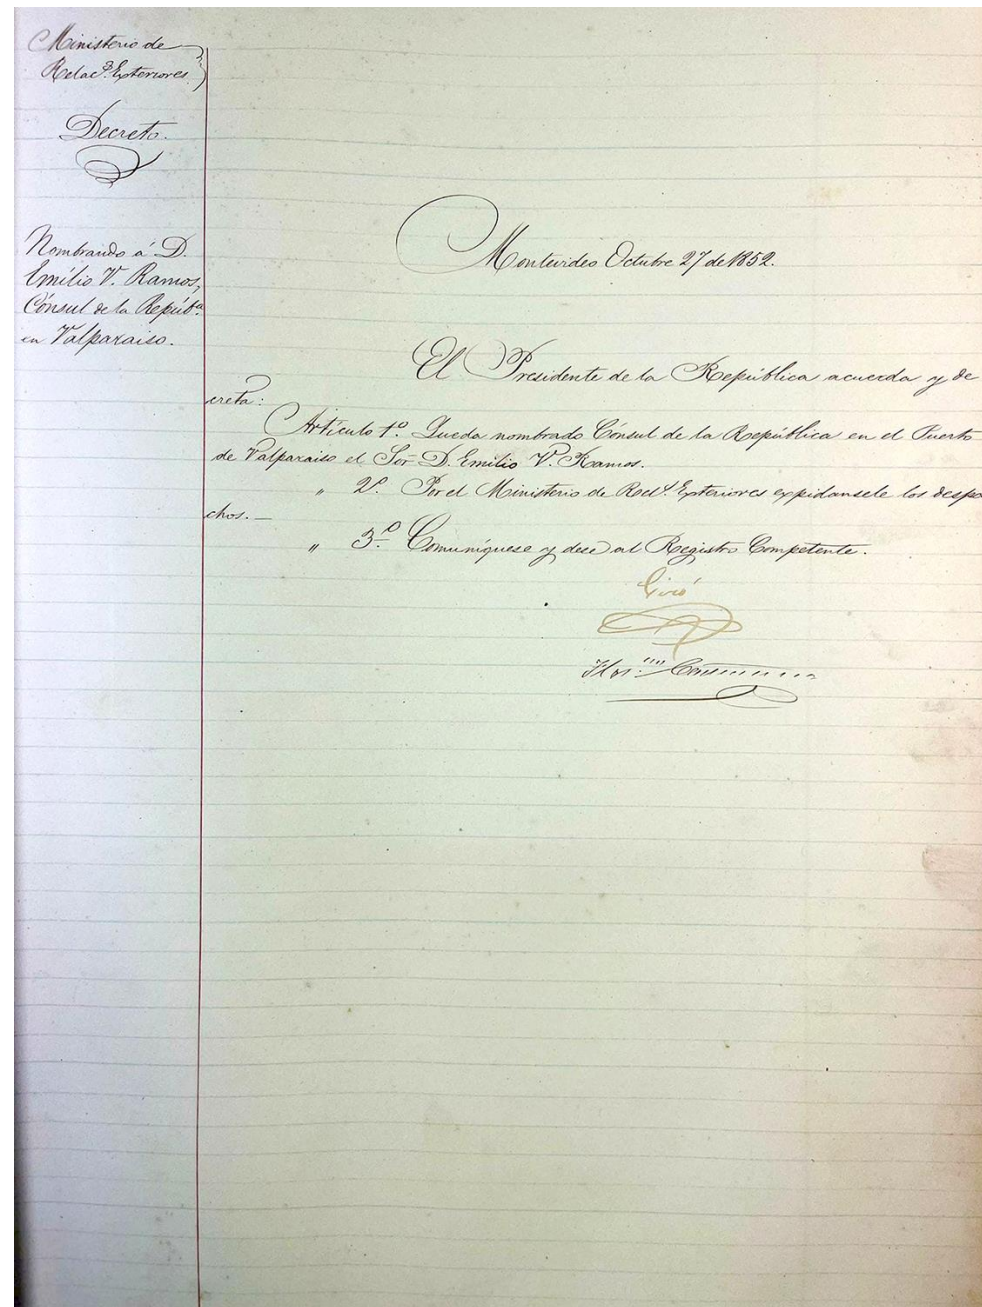 Ministerio de
Relac.s Exteriores.
Decreto.
Nombrando á D.
Emilio V. Ramos,
Cónsul de la Repúb.ca
en Valparaiso.
Montevideo Octubre 27 de 1852.
El Presidente de la República acuerda y de
creta:
Artículo 1º. Queda nombrado Cónsul de la República en el Puerto
de Valparaiso el Sor D. Emilio V. Ramos.
" 2º. Por el Ministerio de Rel.s Exteriores expidansele los despa
chos.—
" 3º. Comuníquese y dese al Registro Competente.
Giró
Flor.